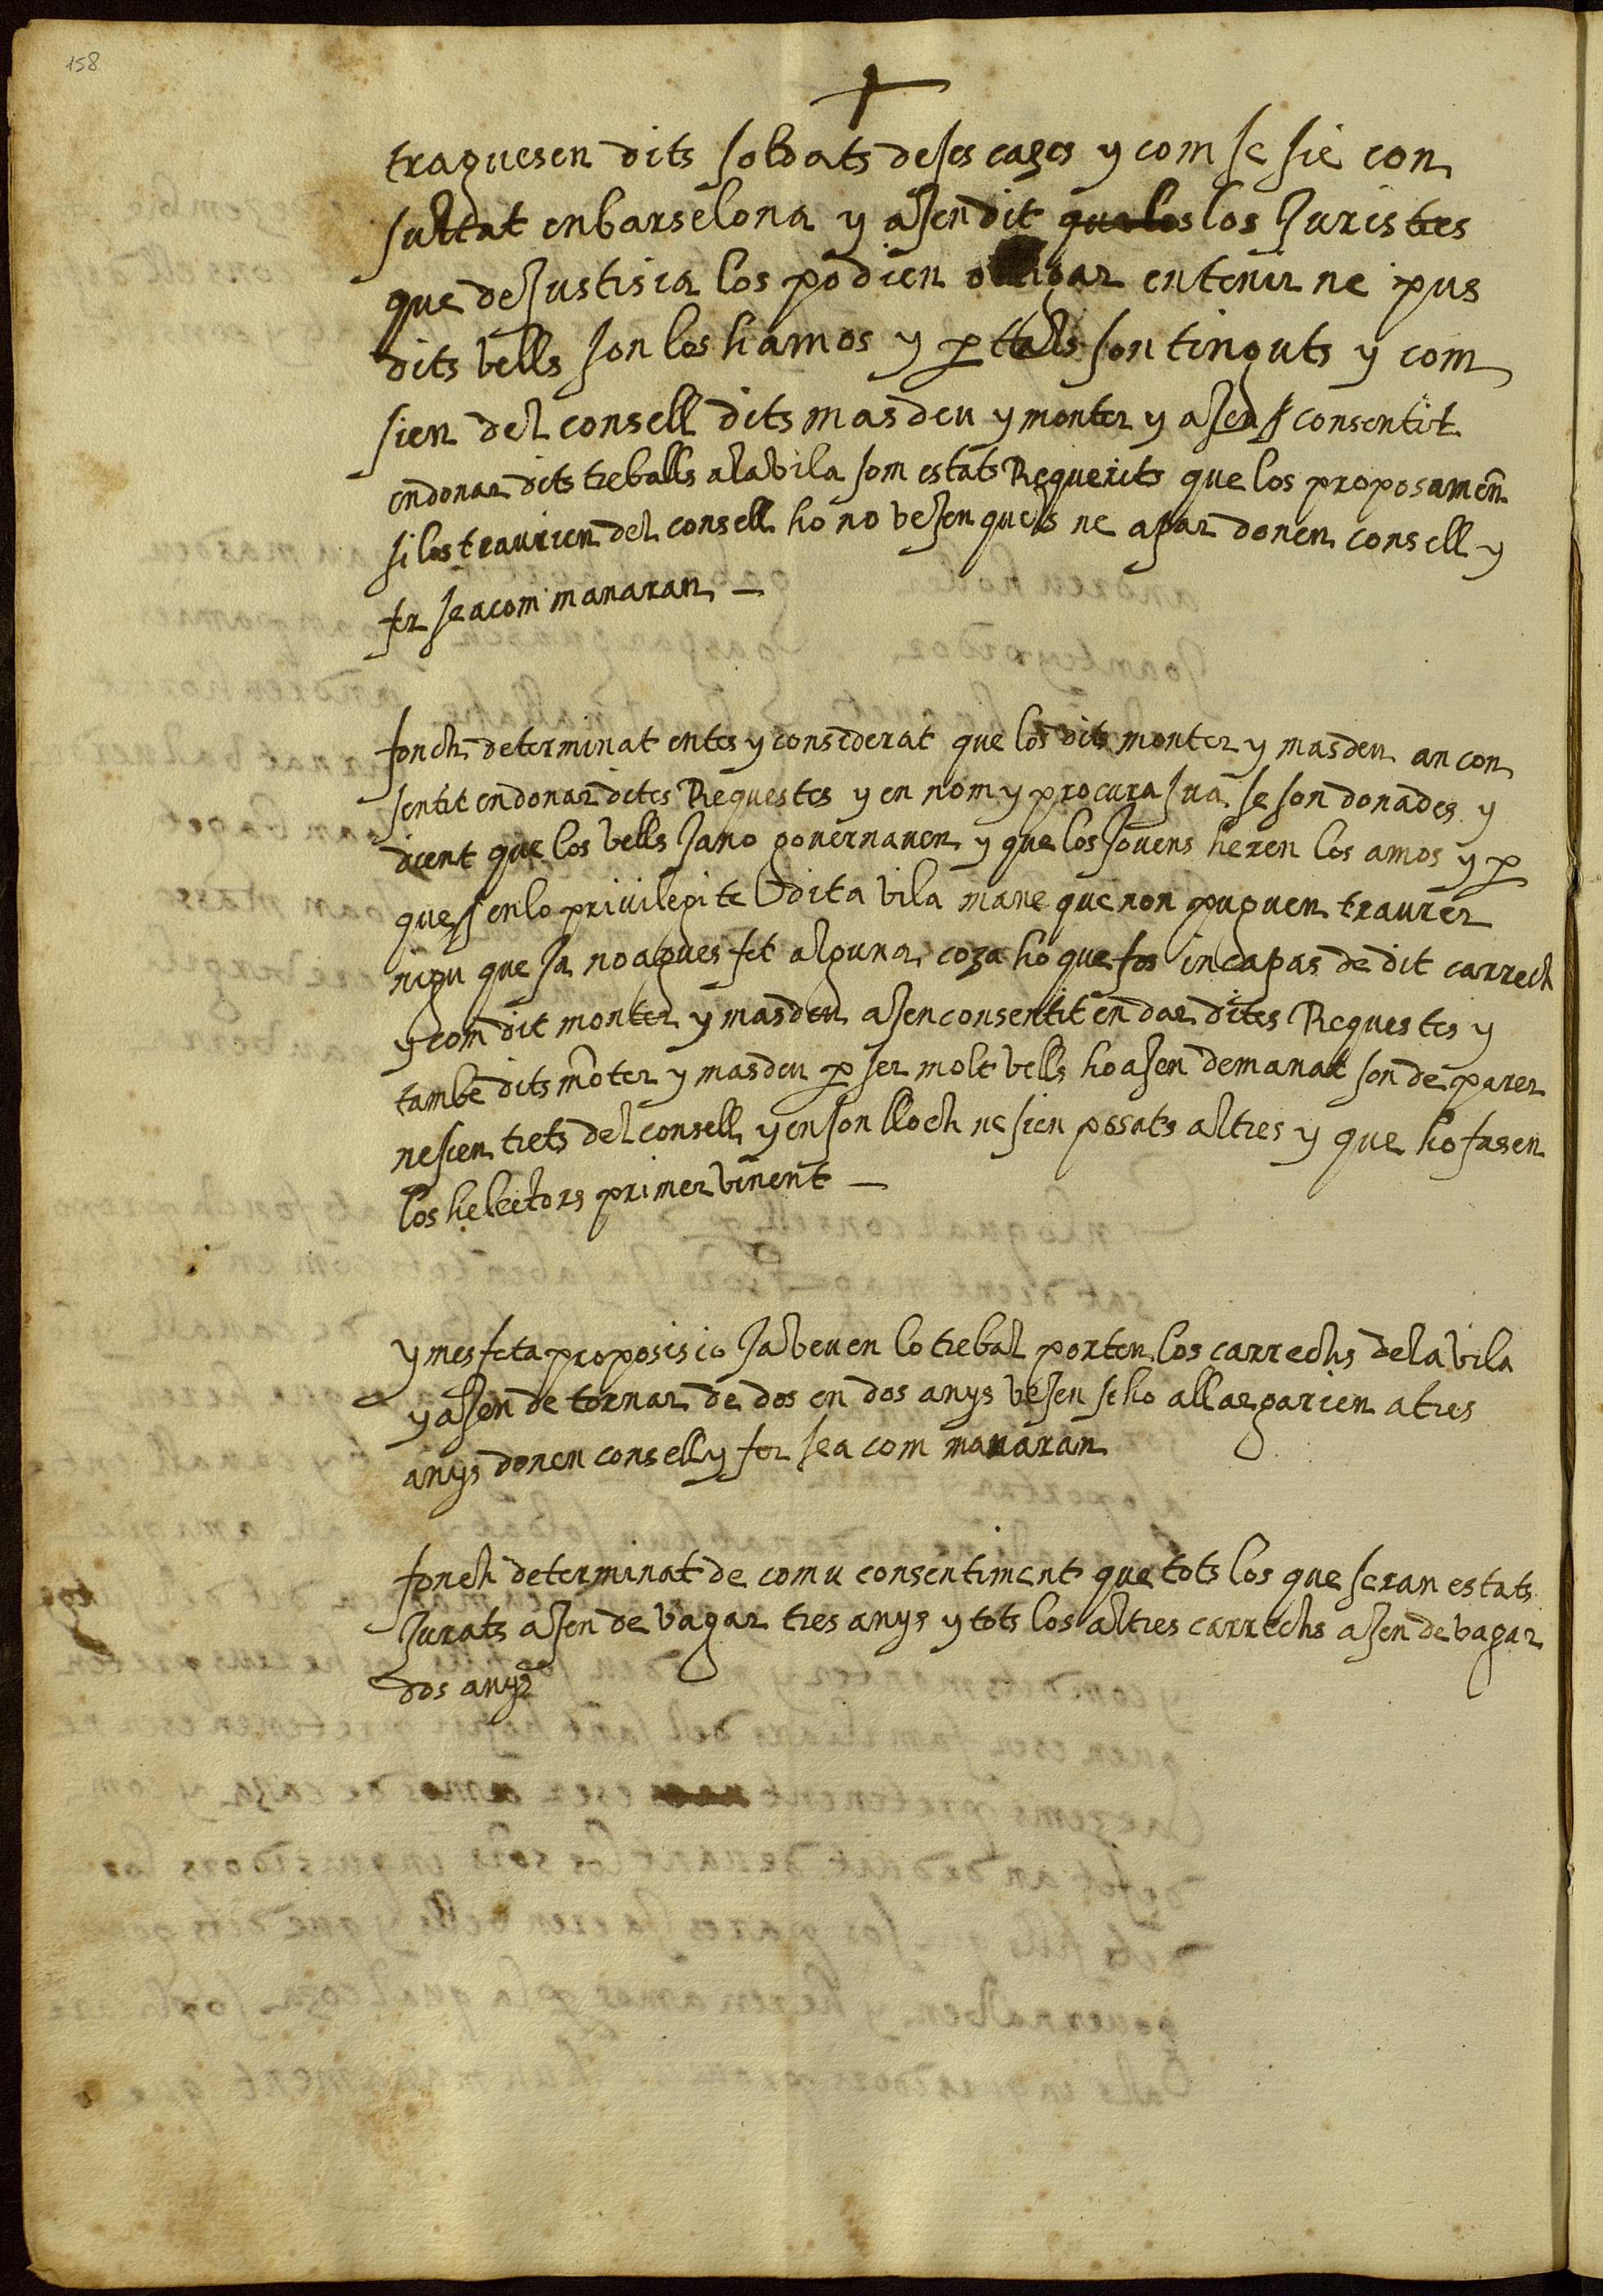 158
traguesen dits soldats de ses cazes y com se sie con
sultat en barselona y asen dit que los los Juristes
que de Justisia los podien obligar en tenir ne pus
dits bells son los hamos y per tals son tinguts y com
sien del consell dits masdeu y monter y asen consentit
en donar dits treballs a la bila som estats Requerits que los proposamen
si los traurien del consell ho no besen quels ne apar donen consell y
fer se a com manaran —
fonch determinat entes y considerat que los dits monter y masdeu an con
sentit en donar dites Requestes y en nom y procura sua se son donades y
dient que los bells Ja no governaven y que los Jovens heren los amos y per
que en lo privilegi te dita vila mane que non puguen traurer
nigu que Ja no agues fet alguna coza ho que fos incapas de dit carrech
y com dit monter y masdeu asen consentit en dar dites Requestes y
tambe dits moter y masdeu per ser molt bells ho asen demanat son de parer
ne sien trets del consell y en son lloch ne sien posats altres y que ho fasen
los helectors primer vinent —
y mes feta proposisio Ja beuen lo trebal porten los carrechs de la bila
y asen de tornar de dos en dos anys besen se ho allargarien a tres
anys donen consell y fer se a com manaran
fonch determinat de comu consentiment que tots los que seran estats
Jurats asen de bagar tres anys y tots los altres carrechs asen de bagar
dos anys